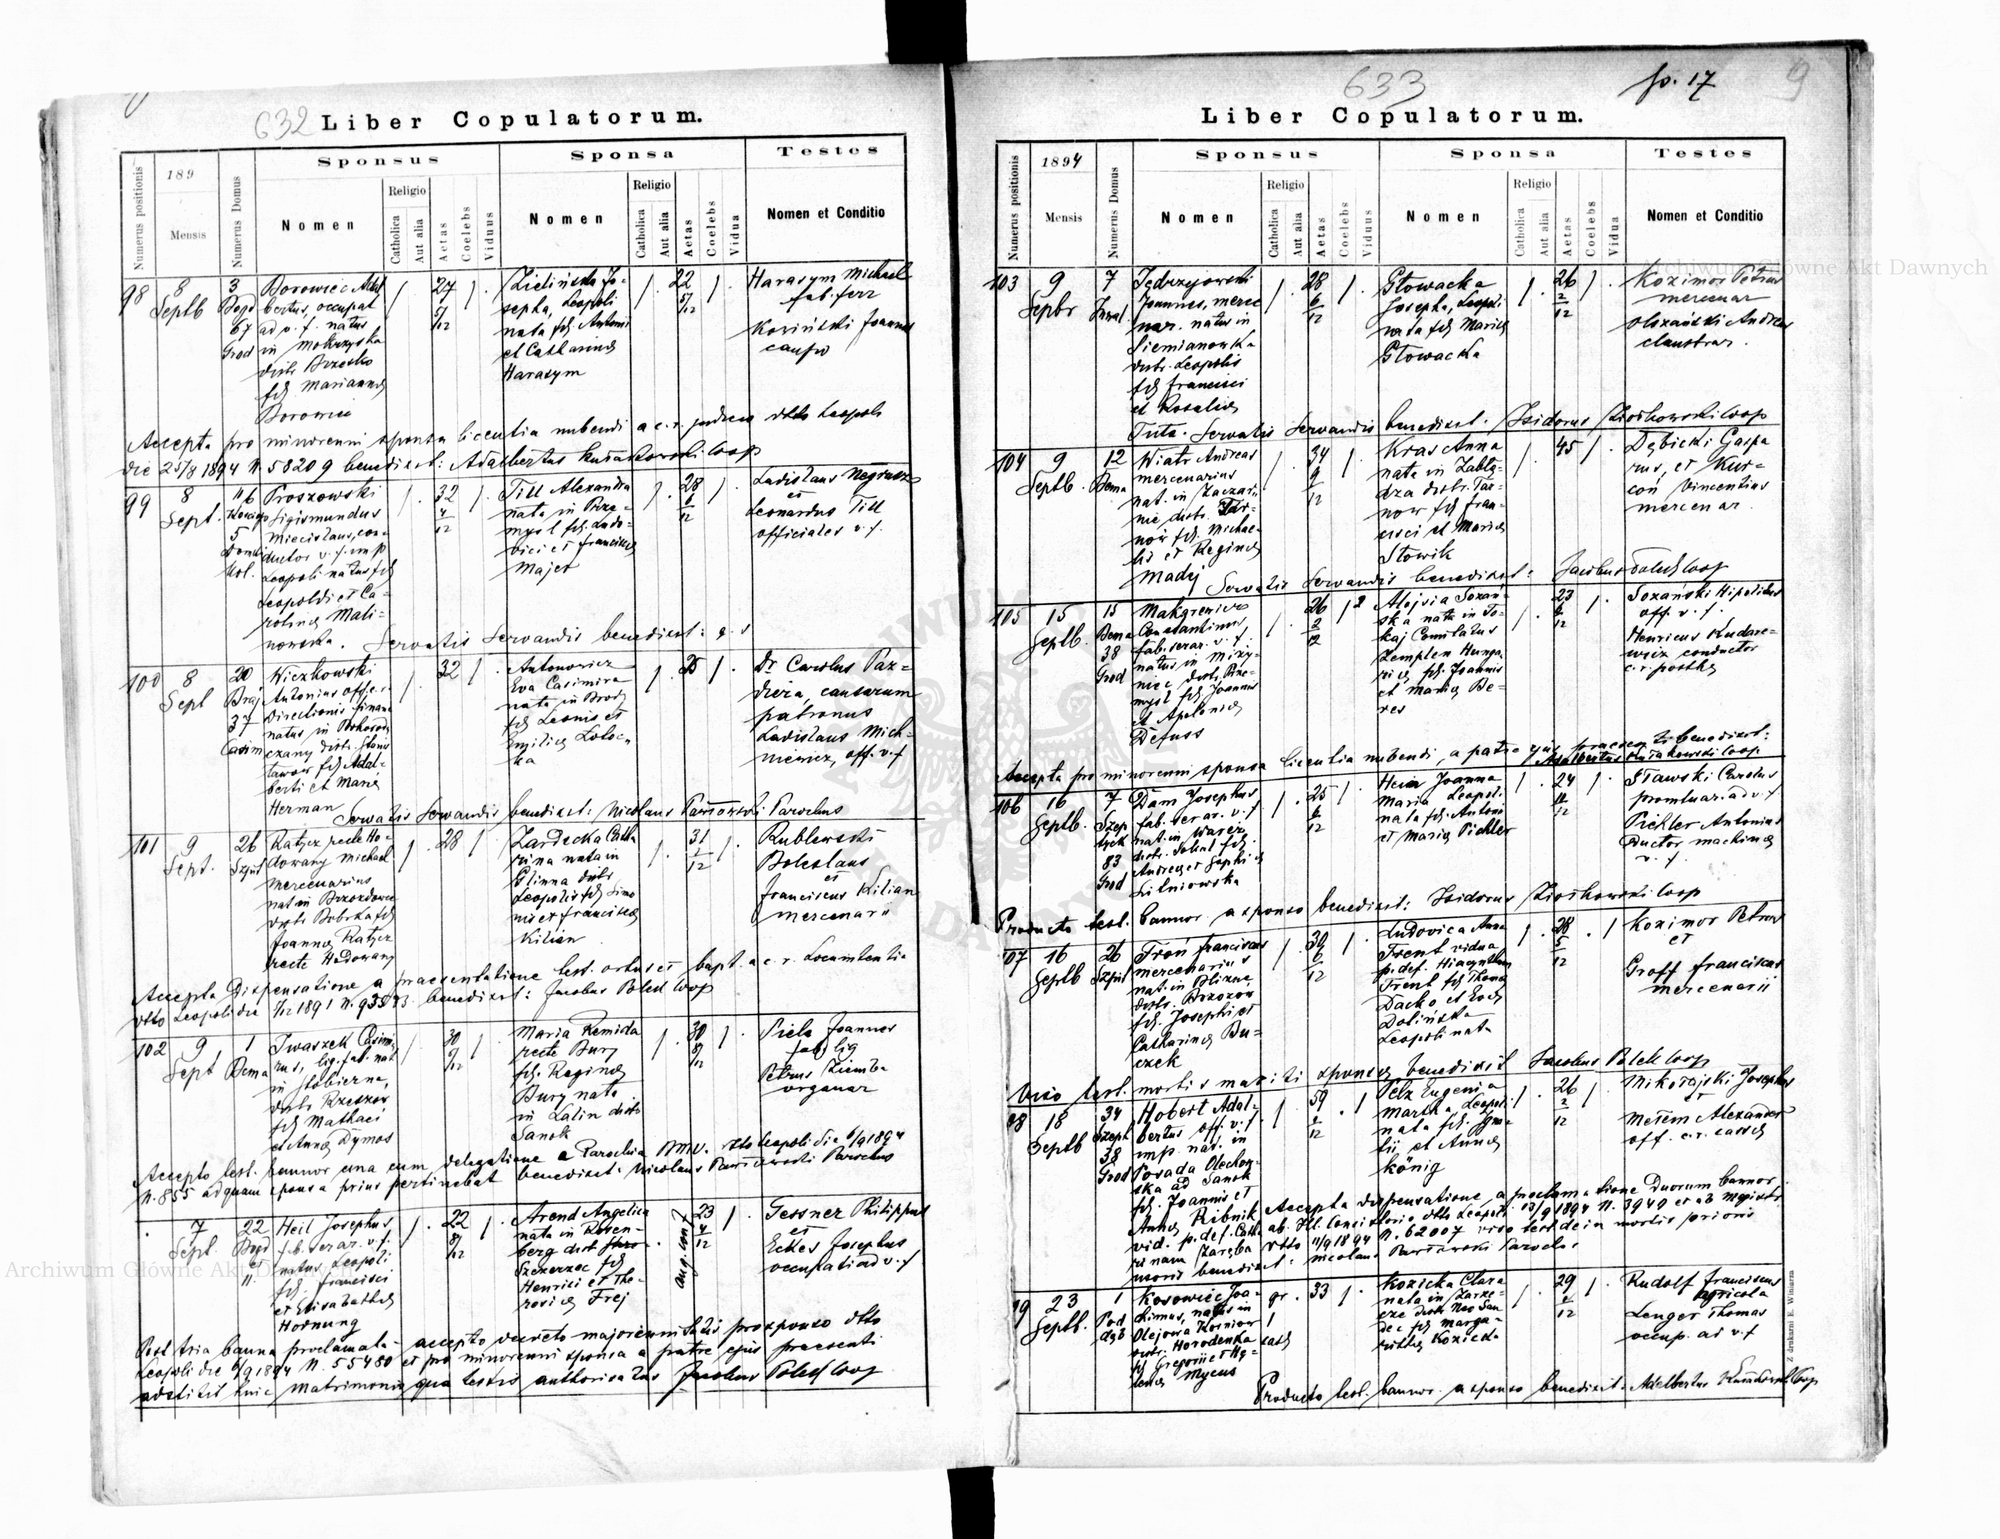 632
Liber Copulatorum.
Numerus positionis
189
Mensis
Numerus Domus
Sponsus
Nomen
Religio
Catholica
Aut alia
Aetas
Coelebs
Viduus
Sponsa
Nomen
Religio
Catholica
Aut alia
Aetas
Coelebs
Vidua
Testes
Nomen et Conditio
98
8
Septb
3
67
Grod
Borowiec Adal
bertus, occupat
ad v. f. natus
in Mokrzyska
distr. Brzesko
fil. Mariannae
Borowiec
24
5/12
Zielińska Jo-
sepha, Leopoli
nata fil. Antonii
et Catharinae
Harasym
22
5/12
Harasym Michael
fab. ferr
Kosiński Joannes
caupo
Accepta pro minorenni sponsa licentia nubendi a c. r. judicio dtto Leopoli
die 25/8 1894 N. 58209 benedixit: Adalbertus Kułakowski Coop
99
8
Sept.
5
Proszowski
Sigismundus
Miecislaus, con-
ductor v. f. imp
Leopoli natus fil
Leopoldi et Ca-
rolinae Mali-
nowska.
32
4/12
Till Alexandra
nata in Prze-
myśl fil. Ludo-
vici et Franciscae
Majer
28
6/12
Ladislaus Negrusz
et
Leonardus Till
officiales v. f.
Servatis Servandis benedixit: q. s
100
8
Sept
20
37
Casim
Wiczkowski
Antonius off. c. r.
Directionis finan
natus in Bohorod
czany distr. Stanis
ławow fil. Adal-
berti et Maria
Herman
32
Antonowicz
Eva Casimira
nata in Brody
fil. Leonis et
Emiliae
25
Dr Carolus Paz-
diera, causarum
patronus
Ladislaus Mich-
niewicz, off. v. f
Servatis Servandis benedixit: Nicolaus Parsowski Parochus
101
9
Sept.
26
Szpit
Ratycz recte Ho-
dowany Michael
mercenarius
nat in Brzozdowce
distr. Bobrka fil
Joannae Ratycz
recte Hodowany
28
Zardecka Catha
rina nata in
Glinna distr
Leopolis fil. Simo
nis et Franciscae
Kilian
31
1/12
Rublewski
Boleslaus
et
Franciscus Kilian
mercenarii
Accepta Dispensatione a praesentatione test. ortus et bapt. a c. r. Locumtentia
dtto Leopoli die benedixit: Jacobus Połeć Coop
102
9
Sept
1
Bema
Iwaszek Casimi
rus, lig. fab. nat
in Stobierna,
distr. Rzeszow
fil. Mathaei
et Annae Dymos
30
Maria Remida
recte Bury
fil. Reginae
Bury nata
in Lalin distr
Sanok
30
Piela Joannes
fab. lig
Petrus Ziemba
organar
Accepto test. bannor una cum delegatione a Parochia B.M.V. dtto Leopoli die 6/9 1894
N. 855 ad quam sponsa prius pertinebat benedixit: Nicolaus Parsowski Parochus
7
Sept.
22
et
11.
Heil Josephus,
fab. serar. v. f.
natus Leopoli
fil. Francisci
et Elisabethae
Hornung
22
8/12
Arend Angelica
nata in Rosen-
berg distr
Szczerzec fil
Henrici et The-
resiae Frej
aug. conf
23
4/12
Tessner Philippus
et
Eckes Josephus
occupati ad v. f
Post tria banna proclamata accepto decreto majorennitatis pro sponso dtto
Leopoli die 6/9 1894 N. 55480 et pro minorenni sponsa a patre ejus praesenti
adstitit huic Matrimonio qua testis authorisatus Jacobus Połeć Coop
633
fo. 17
9
Liber Copulatorum.
Numerus positionis
1894
Mensis
Numerus Domus
Sponsus
Nomen
Religio
Catholica
Aut alia
Aetas
Coelebs
Viduus
Sponsa
Nomen
Religio
Catholica
Aut alia
Aetas
Coelebs
Vidua
Testes
Nomen et Conditio
103
9
Septbr
7
Inwal.
Jędrzejowski
Joannes, merce
nar. natus in
Siemianowka
distr. Leopolis
fil. Francisci
et Rosaliae
Tuta.
28
6/12
Głowacka
Josepha, Leopoli
nata fil. Mariae
Głowacka
26
2/12
Kozimor Petrus
mercenar
Olszański Andreas
claustrar.
Servatis Servandis benedixit: Isidorus Ziołkowski Coop
104
9
Septb.
12
Bema
Wiatr Andreas
mercenarius
nat. in Zaczar-
nie, distr. Tar-
now fil. Michae-
lis et Reginae
Madej
34
9/12
Kras Anna
nata in Zabłę-
dza distr. Tar-
now fil. Fran-
cisci et Mariae
Słowik
45
Dębicki Gaspa
rus, et Kur-
coń Vincentius
mercenar.
Servatis Servandis benedixit: Jacobus Połeć Coop
105
15
Septb.
15
Bema
38
Grod
Makgrewicz
Constantinus,
fab. serar. v. f.
natus in Mizy-
niec distr. Prze-
mysl fil. Joannis
et Apoloniae
Defuss
26
2/12
Aloisia Sozań-
ska nata in To-
kaj Comitatus
Zemplen Hunga-
riae, fil. Joannis
et Mariae Be-
res
23
6/12
Sozański Hipolitus
off. v. f.
Henricus Kudare-
wicz conductor
c. r. postae
Accepta pro minorenni sponsa licentia nubendi, a patre ejus praesenti benedixit:
Adalbertus Kułakowski Coop
106
16
Septb.
7
Szep
tyck
83
Grod
Dam Josephus
fab. serar. v. f
nat. in Warez
distr. Sokal fil.
Andreae et Sophiae
Liśniowska
25
6/12
Hein Joanna
Maria Leopoli
nata fil. Antonii
et Mariae Pichler
24
11/12
Sławski Carolus
promtuar. ad v. f
Pichler Antonius
Ductor machinae
v. f.
Producto test. bannor. a sponso benedixit: Isidorus Ziołkowski Coop
107
16
Septb
26
Szpit
Troń Franciscus
mercenarius
nat. in Blizna,
distr. Brzozow
fil. Josephi et
Catharinae Bu-
czek
30
6/12
Ludovica Anna
Trent vidua
p. def. Hiacynthum
Trent fil. Thoma
Dacko et Evae
Dolińska
Leopoli nata
28
5/12
Kozimor Petrus
et
Groff Franciscus
mercenarii
Viso test. mortis mariti sponsae benedixit Jacobus Połeć Coop
18
Septb
34
Szept
38
Grod
Hobert Adal-
bertus off. v. f.
imp. nat. in
Posada Olechow-
ska ad Sanok
fil. Joannis et
Annae Ribnik
vid. p. def. Catha
rinam Zaręba
uxoris
59
1/12
Pelz Eugenia
Martha, Leopoli
nata fil. Igna-
tii, et Annae
König
26
2/12
Mikołajski Josephus
et
Merem Alexander
off. c. r. cassae
Accepta dispensatione a proclamatione Duorum bannor
ab Ill. Consistorio dtto Leopoli 13/9 1894 N. 3949 et ab Magistr
dtto 11/9 1894 N. 62007 viso test dein mortis prioris
benedixit: Nicolaus Parsowski Paroch.
23
Septb.
1
Pod
dęb
Kosowiec Joa-
kimus, natus in
Olejowa Korniow
distr. Horodenka
fil. Gregorii et He-
lenae Mycus
gr.
cath
33
Kozicka Clara
nata in Zarze-
cze distr. Neo San
dec fil. Marga-
rithae Kozicka
29
1/12
Rudolf Franciscus
agricola
Lenger Thomas
occup. ad v. f
Producto test. bannor. a sponso benedixit: Adelbertus Kułakowski Coop
Z drukarni E. Winiarza
ARCHIWUM GŁÓWNE AKT DAWNYCH
Archiwum Główne Akt Dawnych
Archiwum Główne Akt Dawnych